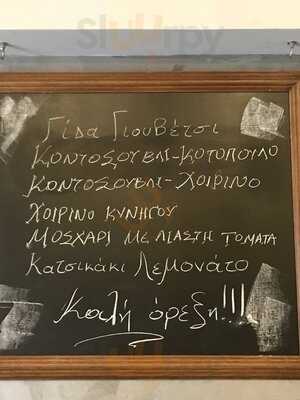 Sluurpy
Γίδα Γιουβέτσι
ΚΟΝΤΟΣΟΥΒΛΙ-ΚΟΤΟΠΟΥΛΟ
ΚΟΝΤΟΣΟΥΒΛΙ-ΧΟΙΡΙΝΟ
ΧΟΙΡΙΝΟ ΚΥΝΗΓΟΥ
ΜΟΣΧΑΡΙ ΜΕ ΛΙΑΣΤΗ ΤΟΜΑΤΑ
Κατσικάκι Λεμονάτο
Καλή όρεξη!!!